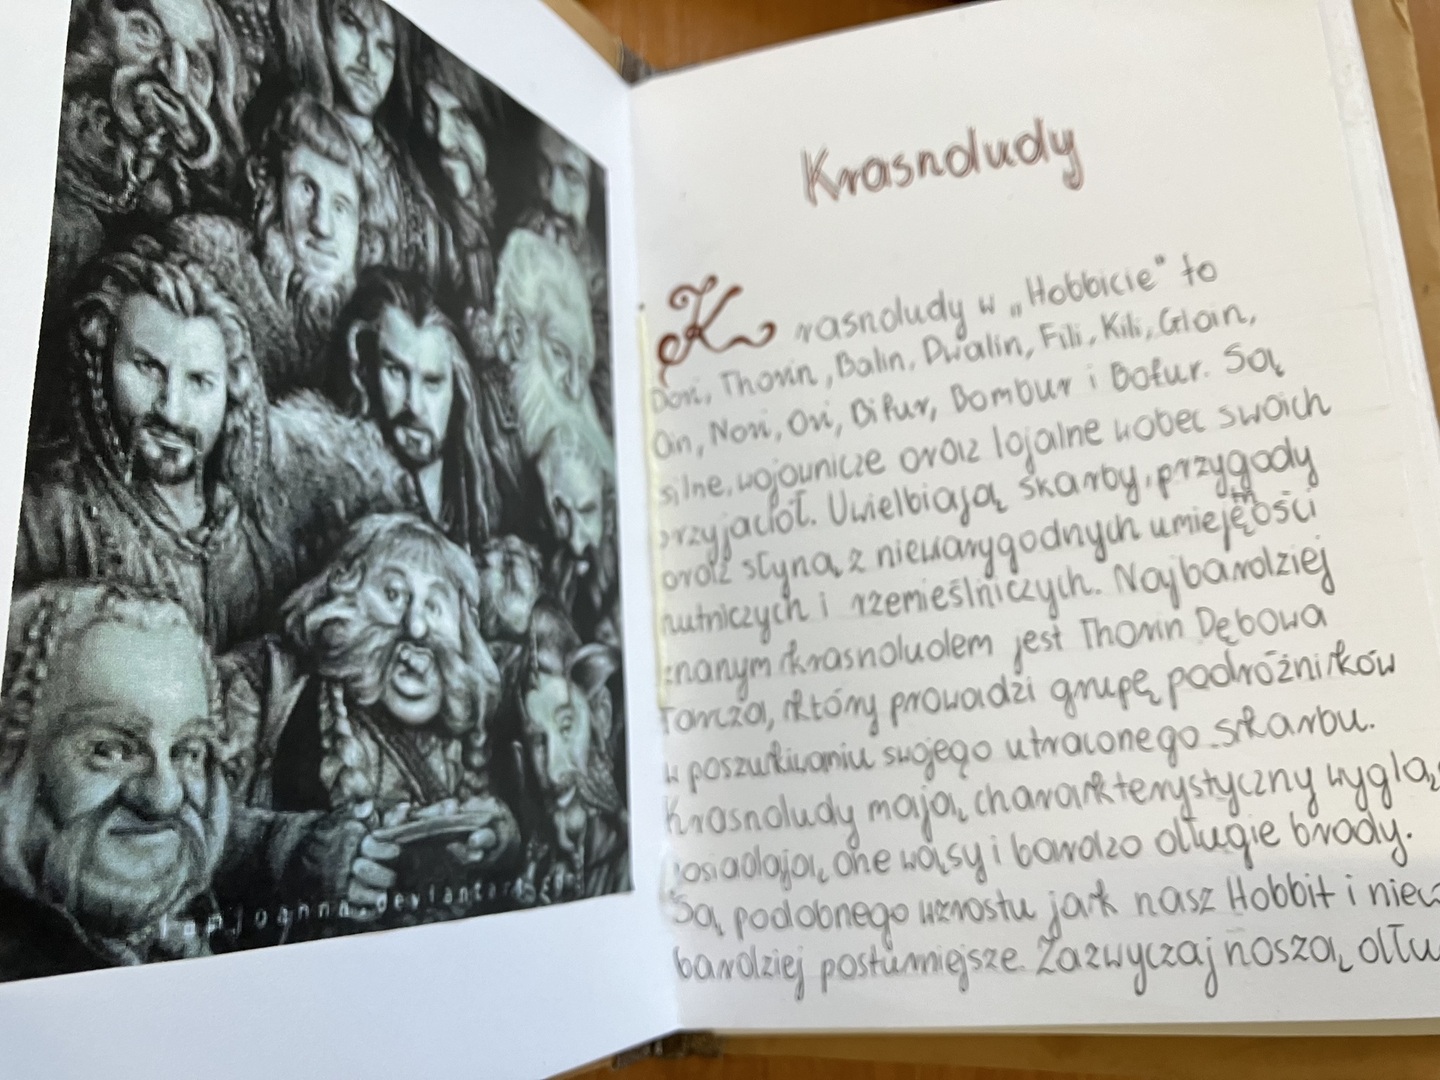 Krasnoludy
Krasnoludy w „Hobbicie" to
Dori, Thorin, Balin, Dwalin, Fili, Kili, Gloin,
Oin, Nori, Ori, Bifur, Bombur i Bofur. Są
silne, wojownicze oraz lojalne wobec swoich
przyjaciół. Uwielbiają skarby, przygody
oraz słyną z niewiarygodnych umiejętności
hutniczych i rzemieślniczych. Najbardziej
znanym krasnoludem jest Thorin Dębowa
Tarcza, który prowadzi grupę podróżników
w poszukiwaniu swojego utraconego skarbu.
Krasnoludy mają charakterystyczny wyglą
posiadają one wąsy i bardzo długie brody.
Są podobnego wzrostu jak nasz Hobbit i niec
bardziej postawniejsze. Zazwyczaj noszą dłu